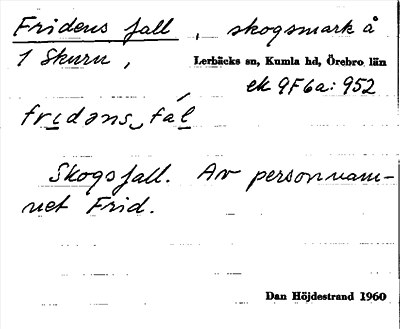 Fridens fall, skogsmark å
1 Skuru, Lerbäcks sn, Kumla hd, Örebro län
ek 9F6a: 952
frìdəns‿fál
Skogsfall. Av personnam-
net Frid.
Dan Höjdestrand 1960